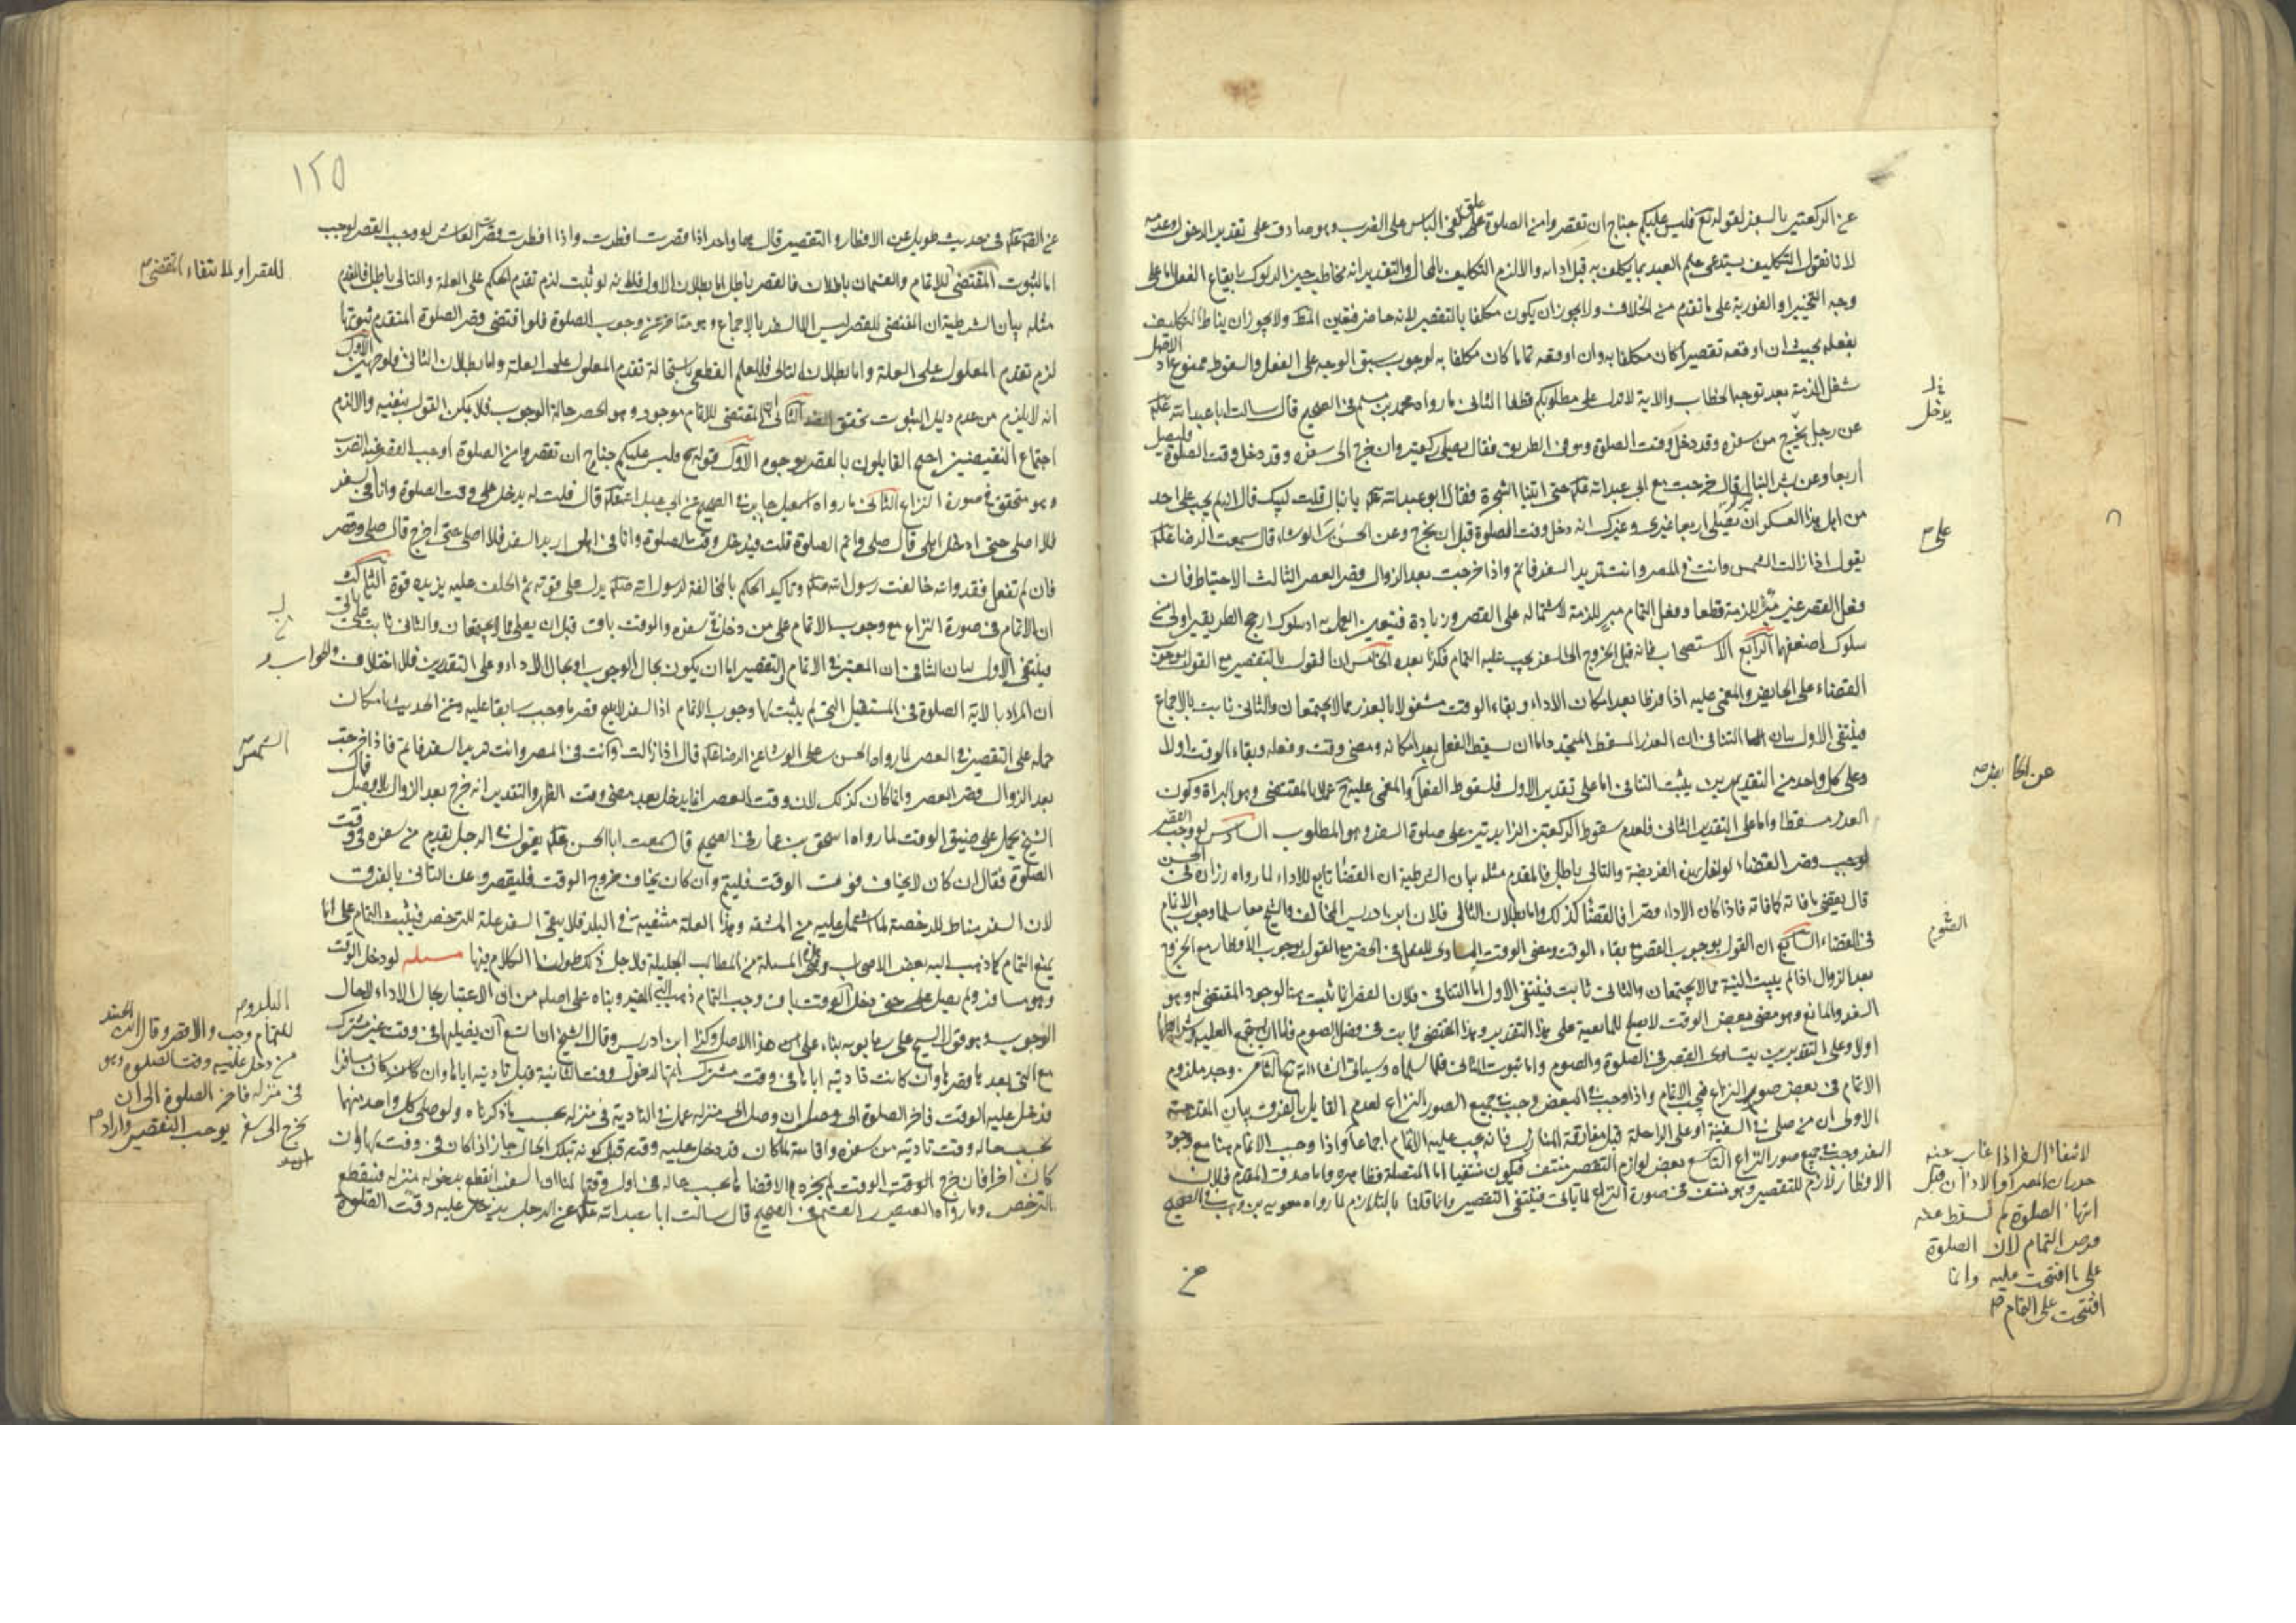 عن الركعتين بالسفر لقوله تع فليس عليكم جناح ان تقصروا من الصلوة على الضرب وهو صادق على تقدير الدخول وعدمه
لانا نقول التكليف يستدعى علم العبد بما يكلف به قبل ادائه والا لزم التكليف بالمحال والتقدير انه مخاطب حين الدلوك بايقاع الفعل اما على
وجه التخيير او الفورية على ما تقدم من الخلاف ولا يجوز ان يكون مكلفا بالتقصير لانه حاضر فتعين المط ولا يجوز ان يناط التكليف
بفعله بحيث ان اوقعه تقصيرا كان مكلفا به وان اوقعه تماما كان مكلفا به لوجوب سبق الوجه على الفعل والسقوط ممنوع اذ الاصل
شغل الذمة بعد توجه الخطاب والاية لا تدل على مطلوبكم قطعا الثانى ما رواه محمد بن مسلم فى الصحيح قال سالت ابا عبد الله عليه
عن رجل يخرج من سفره وقد دخل وقت الصلوة وهو فى الطريق فقال يصلى ركعتين وان خرج الى سفره وقد دخل وقت الصلوة فليصل
اربعا وعن بشير النبال قال خرجت مع ابى عبد الله عليه حتى اتينا الشجرة فقال ابو عبد الله عليه يا نبال قلت لبيك قال انه لم يجب على احد
من اهل هذا العسكر ان يصلى اربعا غيرى وغيرك انه دخل وقت الصلوة قبل ان نخرج وعن الحسن بن على الوشاء قال سمعت الرضا عليه
يقول اذا زالت الشمس وانت فى المصر وانت تريد السفر فاتم واذا خرجت بعد الزوال قصر العصر الثالث الاحتياط فان
فعل القصر غير مبرئ للذمة قطعا وفعل التمام مبر للذمة لاشتماله على القصر وزيادة فيتعين العمل به اذ سلوك ارجح الطريقين اولى من
سلوك اضعفهما الرابع الاستصحاب فانه قبل الخروج الى السفر يجب عليه التمام فكذا بعده الخامس ان القول بالتقصير مع القول بوجوب
القضاء على الحايض والمغمى عليه اذا فرطا بعد امكان الاداء وبقاء الوقت مشغولا بالعذر مما لا يجتمعان والثانى ثابت بالاجماع
فينتفى الاول بيان التنافى ان العذر المسقط المتجدد اما ان يسقط الفعل بعد امكانه ومضى وقت وفعله وبقاء الوقت اولا
وعلى كل واحد من التقديرين يثبت التنافى اما على تقدير الاول فلسقوط الفعل والمغمى عليه عملا بالمقتضى وهو البراة وكون
العذر مسقطا واما على التقدير الثانى فلعدم سقوط الركعتين الزايدتين على صلوة السفر وهو المطلوب السادس لو وجب القصر
لوجب قصر القضاء لو اخل بهذه الفريضة والتالى باطل فالمقدم مثله بيان الشرطية ان القضا تابع للاداء لما رواه زرارة فى الحسن
قال يقضى ما فاته كما فاته فاذا كان الاداء قصرا فالقضا كذلك واما بطلان التالى فلان ابن ادريس المخالف والشيخ معا سلما وجوب الاتمام
فى القضاء السابع ان القول بوجوب القصر مع بقاء الوقت ومضى الوقت المساوى للفعل فى الحضر مع القول بوجوب الافطار مع الخروج
بعد الزوال اذا لم يبيت النية مما لا يجتمعان والثانى ثابت فينتفى الاول اما التنافى فلان القصر انما ثبت هنا لوجود المقتضى له وهو
السفر والمانع وهو مضى بعض الوقت لا يصلح للمانعية على هذا التقدير وهذا المقتضى ثابت فى فصل الصوم
اولا وعلى التقديرين يتساوى القصر فى الصلوة والصوم واما ثبوت الثانى فلما سلماه وسياتى ان شاء الله تع الثامن وجد ملزوم
الاتمام فى بعض صور النزاع فيجب الاتمام واذا وجب فى البعض وجب فى جميع الصور النزاع لعدم القايل بالفرق بيان المقدمة
الاولى ان من صلى فى السفينة او على الراحلة قبل مفارقة المنازل فانه يجب عليه الاتمام اجماعا واذا وجب الاتمام هنا مع وجود
السفر وجب فى جميع صور النزاع التاسع بعض لوازم التقصير منتف فيكون منتفيا اما المتصلة فظاهرة واما صدق المقدم فلان
الافطار لازم للتقصير وهو منتف فى صورة النزاع لما ياتى فينتفى التقصير وانما قلنا بالتلازم لما رواه معوية بن وهب فى الصحيح
عن
يدخل
على
عن الحايض
الصوم
لانتفاء السفر اذا غاب عنه
جدران المصر او الاذان قبل
انتهاء الصلوة لم يسقط عنه
فرض التمام لان الصلوة
على ما افتتحت عليه وانما
افتتحت على التمام
١٢٥
عليه فى حديث طويل عن الافطار و التقصير قال هما واحد اذا قصرت افطرت واذا افطرت قصرت العاشر لو وجب القصر لوجب
اما لثبوت المقتضى للاتمام والقسمان باطلان فالقصر باطل اما بطلان الاول فلانه لو ثبت لزم تقدم الحكم على العلة والتالى باطل فالمقدم
مثله بيان الشرطية ان المقتضى للقصر ليس الا السفر بالاجماع وهو متاخر عن وجوب الصلوة فلو اقتضى قصر الصلوة المتقدم ثبوتها
لزم تقدم المعلول على العلة واما بطلان التالى فللعلم القطعى باستحالة تقدم المعلول على العلة واما بطلان الثانى فلوجهين الاول
انه لا يلزم من عدم دليل الثبوت تحقق الثانى المقتضى للاتمام موجود وهو الحضر حالة الوجوب فلا يمكن القول بنفيه والا لزم
اجتماع النقيضين احتج القايلون بالقصر بوجوه الاول قوله تع فليس عليكم جناح ان تقصروا من الصلوة اوجب القصر عند الضرب
وهو متحقق فى صورة النزاع الثانى ما رواه اسمعيل جابر فى الصحيح عن ابى عبد الله عليه قال قلت له يدخل على وقت الصلوة وانا فى السفر
فلا اصلى حتى ادخل اهلى قال صل واتم الصلوة قلت فيدخل وقت الصلوة وانا فى اهلى اريد السفر فلا اصلى حتى اخرج قال صل وقصر
فان لم تفعل فقد والله خالفت رسول الله وتاكيد الحكم بالمخالفة لرسول الله يدل على قوته ثم الحلف عليه يزيده قوة الثالث
ان الاتمام فى صورة النزاع مع وجوب الاتمام على من دخل فى سفره والوقت باق قبل ان يصلى مما لا يجتمعان والثانى ثابت على ما ياتى
فينتفى الاول بيان التنافى ان المعتبر فى الاتمام والتقصير اما ان يكون بحال الوجوب او بحال الاداء وعلى التقديرين فلا اختلاف والجواب
ان المراد بالاية الصلوة فى المستقبل التى لم يثبت لها وجوب الاتمام اذ السفر لا يبيح قصر ما وجب سابقا عليه وعن الحديث بامكان
حمله على التقصير فى العصر لما رواه الحسن بن على الوشا عن الرضا عليه قال اذا زالت وانت فى المصر وانت تريد السفر فاتم فاذا خرجت
بعد الزوال قصر العصر وانما كان كذلك لان وقت العصر انما يدخل بعد مضى وقت الظهر والتقدير انه خرج بعد الزوال بلا فصل قال
الشيخ يحمل على ضيق الوقت لما رواه اسحق بن عمار فى الصحيح قال سمعت ابا الحسن عليه يقول فى الرجل يقدم من سفره فى وقت
الصلوة فقال ان كان لا يخاف فوت الوقت فليتم وان كان يخاف خروج الوقت فليقصر وعن الثانى بالفرق
لان السفر مناط للرخصة لما اشتمل عليه من المشقة وهذه العلة منتفية فى البلد فلا يبقى السفر علة للترخص فيثبت التمام على انا
نمنع التمام كما ذهب اليه بعض الاصحاب وهذه المسلة من المطالب الجليلة فلاجل ذلك طولنا الكلام فيها مسئلة لو دخل الوقت
وهو مسافر ولم يصل حتى دخل الوقت باق وجب التمام ذهب اليه المفيد وبناه على اصله من ان الاعتبار بحال الاداء لا بحال
الوجوب وهو قول على بن بابويه بناء على هذا الاصل وكذا ابن ادريس وقال الشيخ ان اتسع
مع التى بعدها قصرها وان كانت تاديته اياها فى وقت مشترك
قد دخل عليه الوقت فاخر الصلوة الى وصل الى منزله عمل فى التادية فى منزله بحسب ما ذكرناه ولو صلى كل واحد منهما
بحسب حاله وقت تاديته من سفره واقامته لما كان قد دخل عليه وقته قبل كونه بتلك الحال جاز اذا كان فى وقت
كان اخرا فان خرج الوقت لم يجزه الا قضاها بحسب حاله فى اول وقتها لنا ان السفر انقطع بدخوله منزله فينقطع
الترخص وما رواه العيص بن القسم فى الصحيح قال سالت ابا عبد الله عليه عن الرجل يدخل عليه وقت الصلوة
للقصر او لانتفاء المقتضى
الشمس
البلد
للتمام وجب والا قصر وقال ابن الجنيد
من دخل عليه وقت الصلوة وهو
فى منزله فاخر الصلوة الى ان
يخرج الى سفر يوجب التقصير واراد